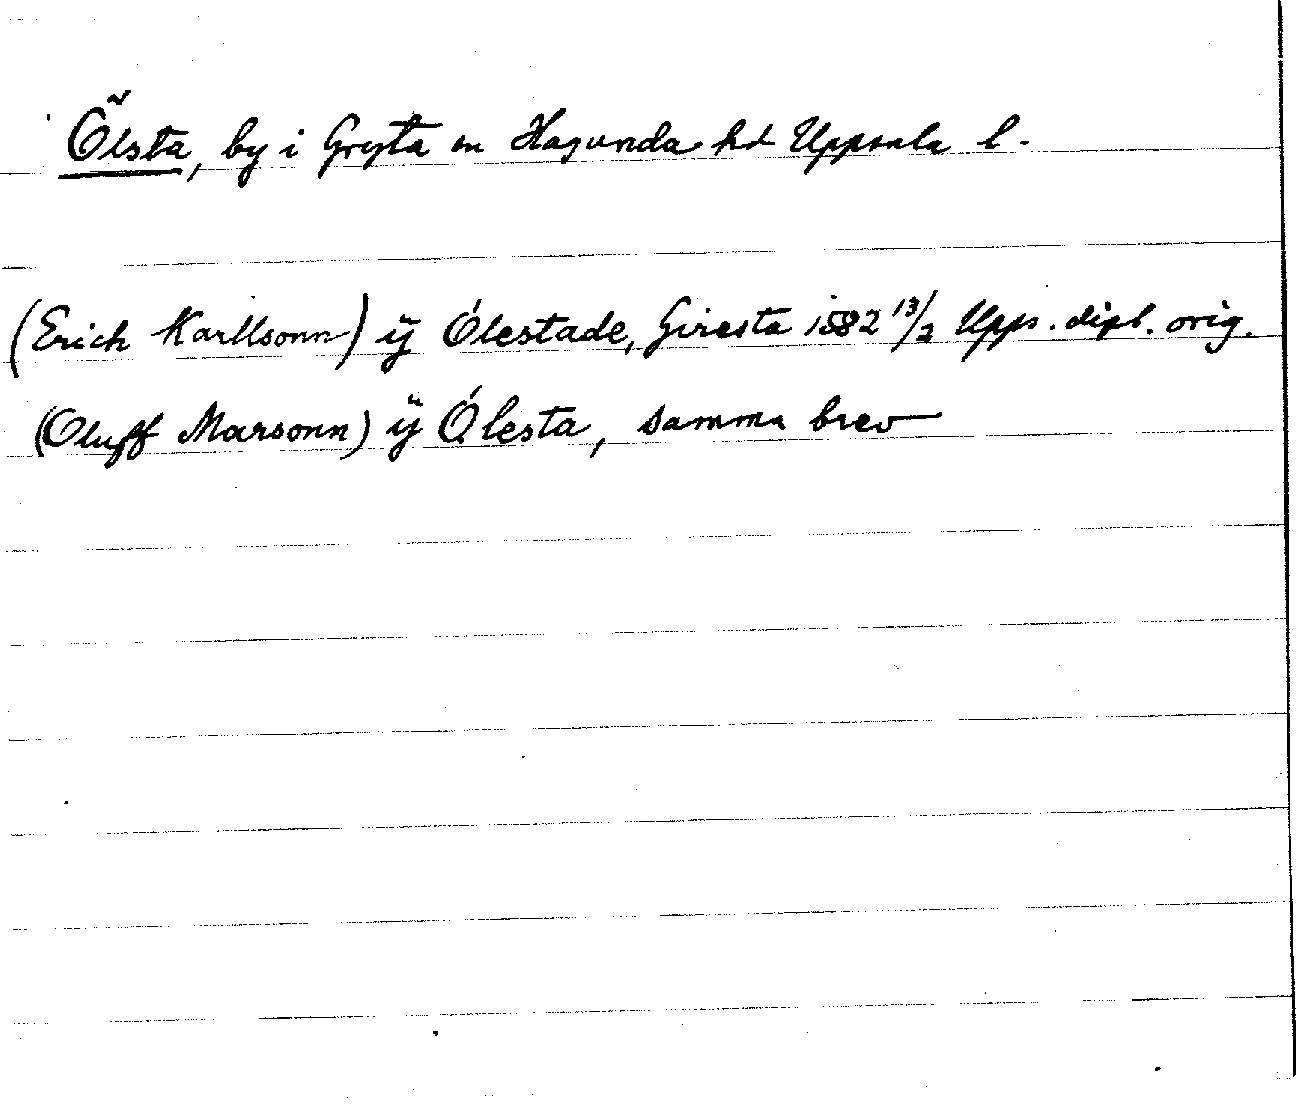 Ölsta, by i Gryta sn Hagunda hd Uppsala l.
(Erich Karllsonn) ÿ Ólestade, Giresta 1582 13/2 Upps. dipl. orig.
(Oluff Marsonn) ÿ Ólesta, samma brev